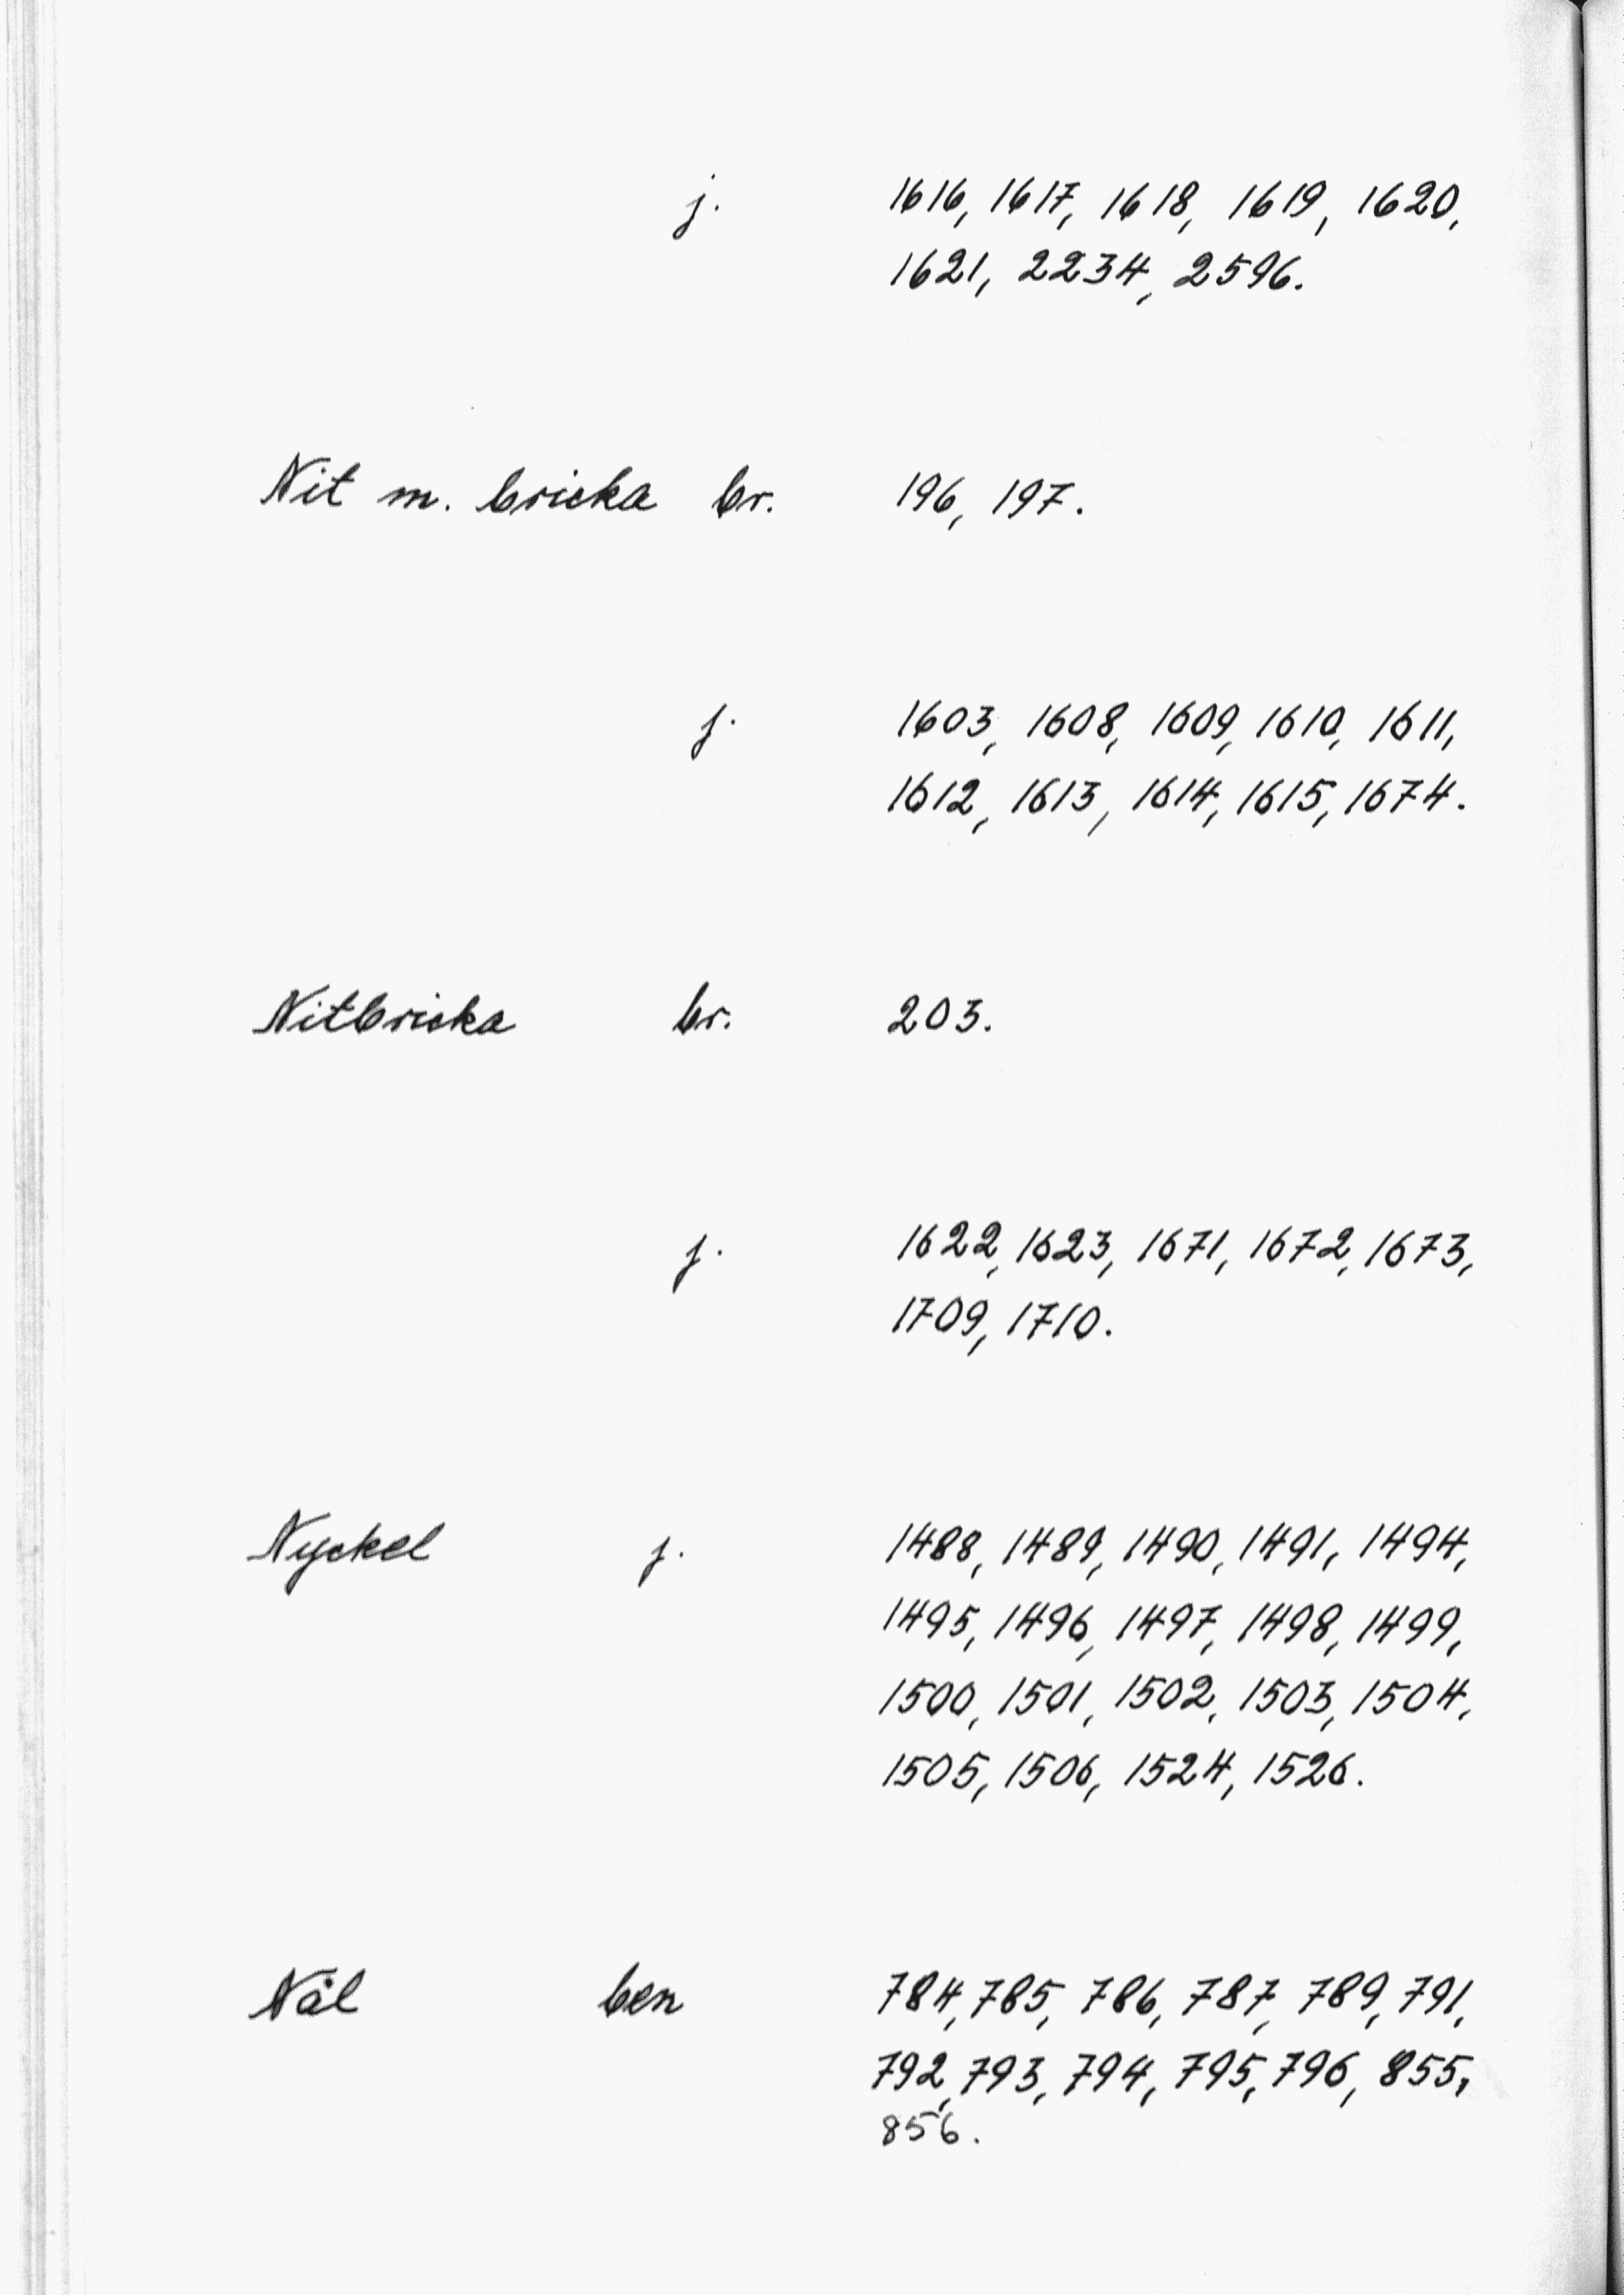 j. 1616, 1617, 1618, 1619, 1620,
1621, 2234, 2596.
Nit m. bricka br. 196, 197.
j. 1603, 1608, 1609, 1610, 1611,
1612, 1613, 1614, 1615, 1674.
Nitbricka br. 203.
j. 1622, 1623, 1671, 1672, 1673,
1709, 1710.
Nyckel j. 1488, 1489, 1490, 1491, 1494,
1495, 1496, 1497, 1498, 1499,
1500, 1501, 1502, 1503, 1504,
1505, 1506, 1524, 1526.
Nål ben 784, 785, 786, 787, 789, 791,
792, 793, 794, 795, 796, 855,
856.